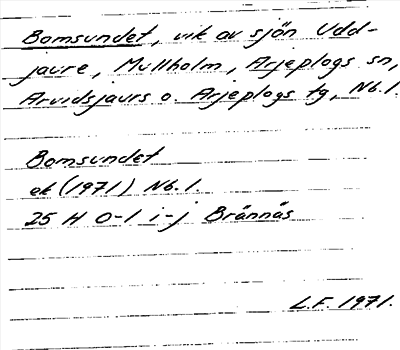 Bomsundet, vik av sjön Udd-
jaure, Mullholm, Arjeplogs sn,
Arvidsjaurs o. Arjeplogs tg, Nb.l.
Bomsundet
ek (1971) Nb.l.
25 H 0-1 i-j Brännäs
L.F. 1971.